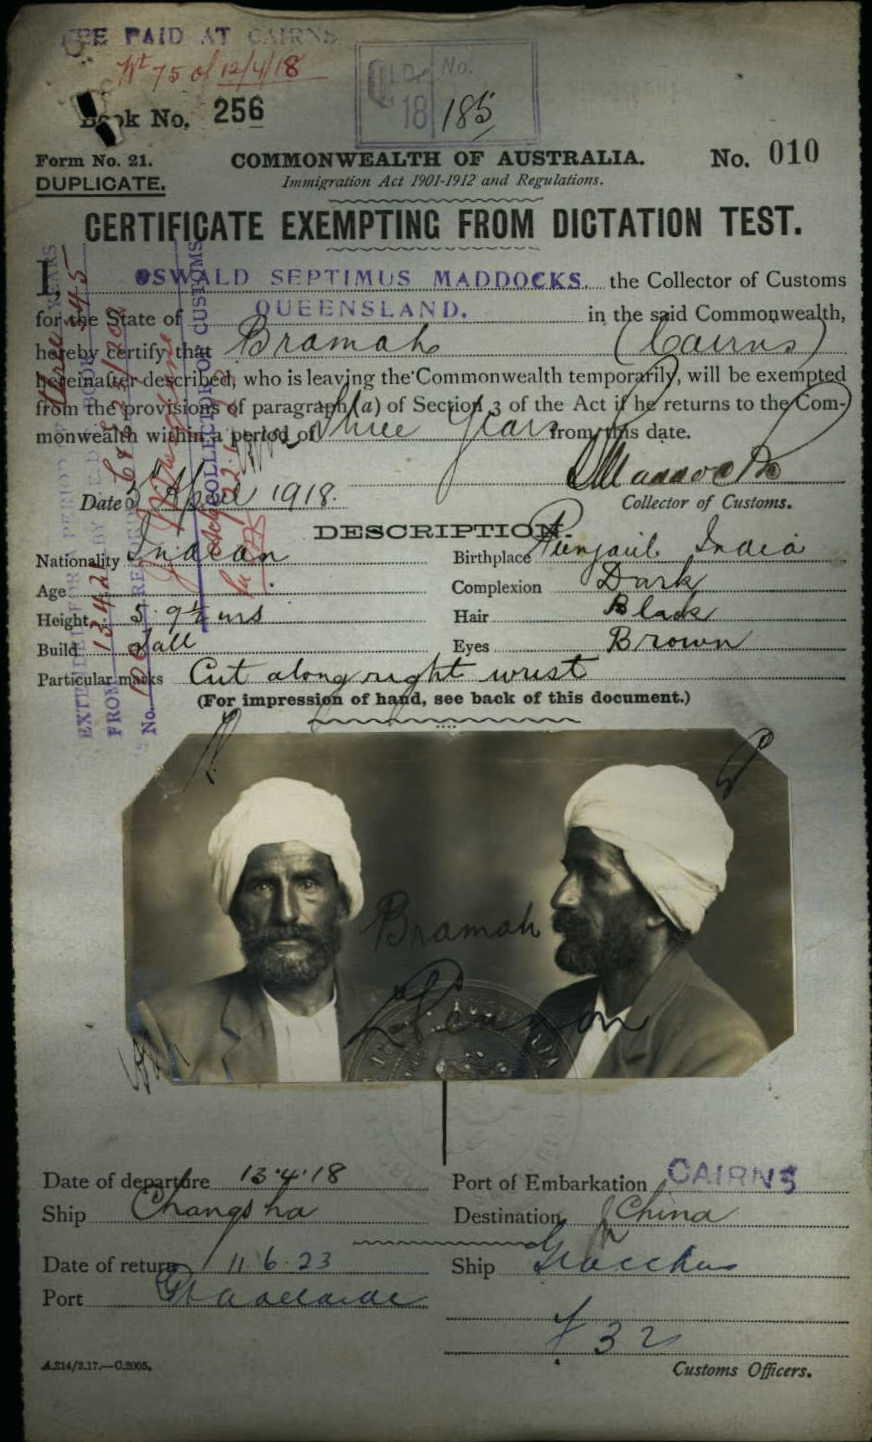 FEE PAID AT CAIRNS
No 75 of 12/4/18
Book No. 256
QLD. No.
18/185
Form No. 21.
COMMONWEALTH OF AUSTRALIA.
No. 010
DUPLICATE.
Immigration Act 1901-1912 and Regulations.
CERTIFICATE EXEMPTING FROM DICTATION TEST.
I, OSWALD SEPTIMUS MADDOCKS. the Collector of Customs
for the State of QUEENSLAND. in the said Commonwealth,
hereby certify that Bramah (Cairns)
hereinafter described, who is leaving the Commonwealth temporarily, will be exempted
from the provisions of paragraph (a) of Section 3 of the Act if he returns to the Com-
monwealth within a period of Three Years from this date.
OSMaddocks
Date 3rd April 1918.
Collector of Customs.
DESCRIPTION.
Nationality Indian
Birthplace Punjaub India
Age
Complexion Dark
Height 5. 9½
Hair Black
Build Tall
Eyes Brown
Particular marks Cut along right wrist
(For impression of hand, see back of this document.)
COLLECTOR OF CUSTOMS
FROM
No.
Bramah
Date of departure 13.4.18
Port of Embarkation CAIRNS
Ship Changsha
Destination China
Date of return 11.6.23
Ship Gracchus
Port Pt Adelaide
32
A.214/2.17.—C.2005.
Customs Officers.